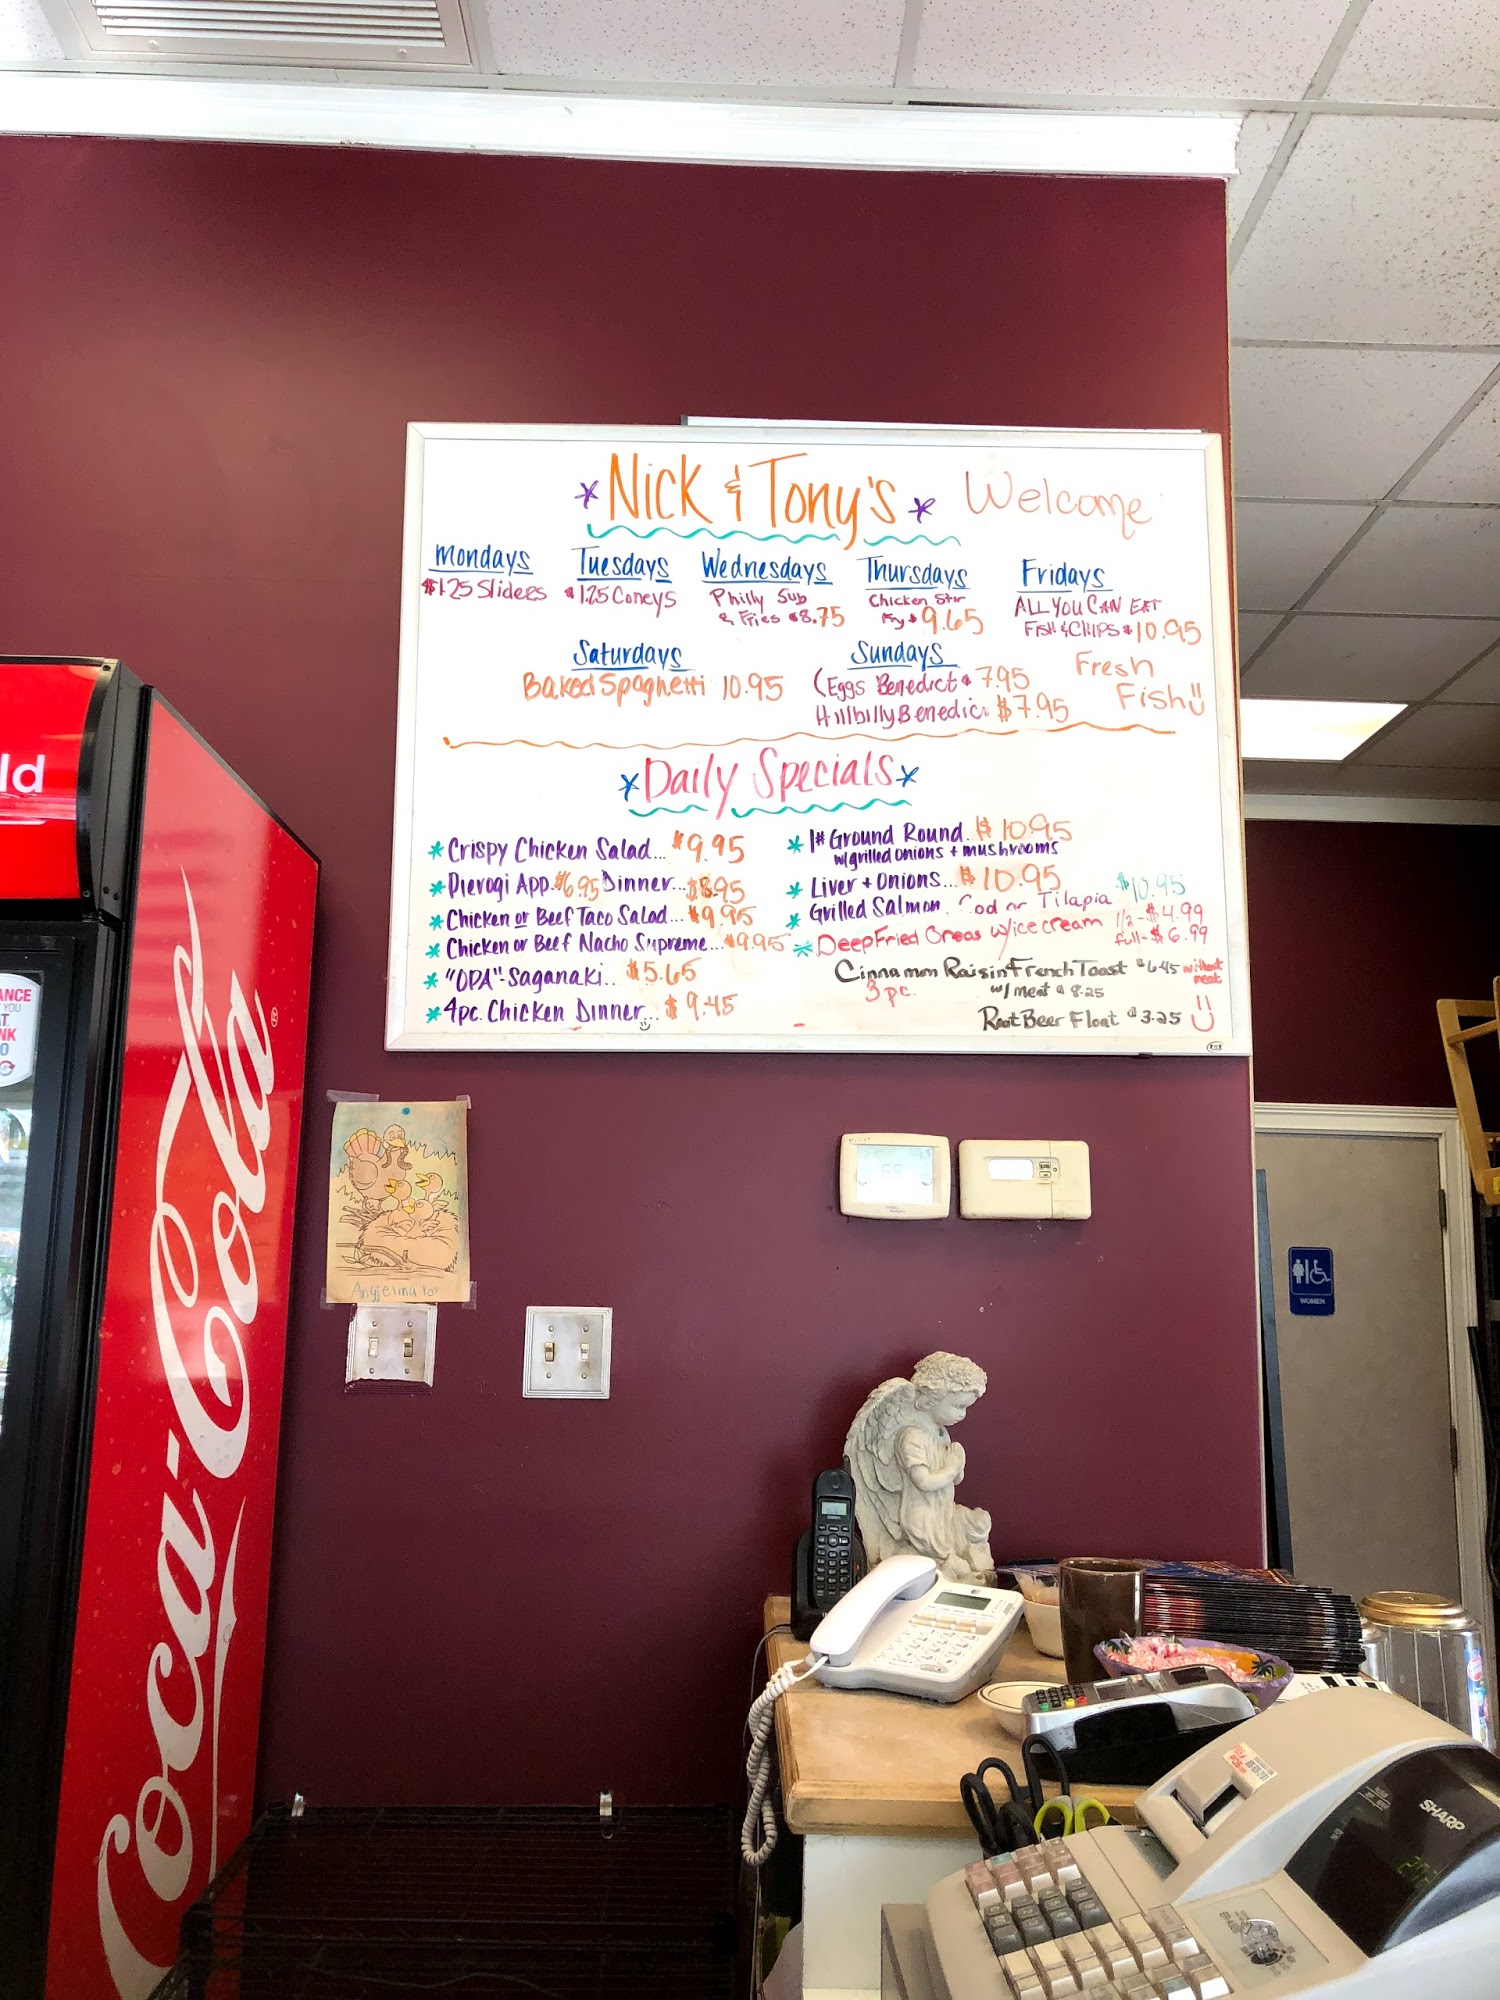 * Nick & Tony's * Welcome
Mondays
$1.25 Sliders
Tuesdays
$1.25 Coneys
Wednesdays
Philly Sub
& Fries $8.75
Thursdays
Chicken Stir
Fry $9.65
Fridays
ALL YOU CAN EAT
FISH & CHIPS $10.95
Fresh
Fish
Saturdays
Baked Spaghetti 10.95
Sundays
(Eggs Benedict $7.95
Hillbilly Benedict $7.95
* Daily Specials *
* Crispy Chicken Salad... $9.95
* Pierogi App. $6.95 Dinner... $8.95
* Chicken or Beef Taco Salad... $9.95
* Chicken or Beef Nacho Supreme... $9.95
* "OPA"-Saganaki.. $5.65
* 4pc. Chicken Dinner... $9.45
* 1# Ground Round. $10.95
w/grilled onions + mushrooms
* Liver + Onions... $10.95
* Grilled Salmon. Cod or Tilapia $10.95
* Deep Fried Oreos w/ice cream 1/2-$4.99
full-$6.99
Cinnamon Raisin French Toast $6.45 without meat
3 pc. w/ meat $8.25
Root Beer Float $3.25
ld
Coca-Cola
WOMEN
SHARP